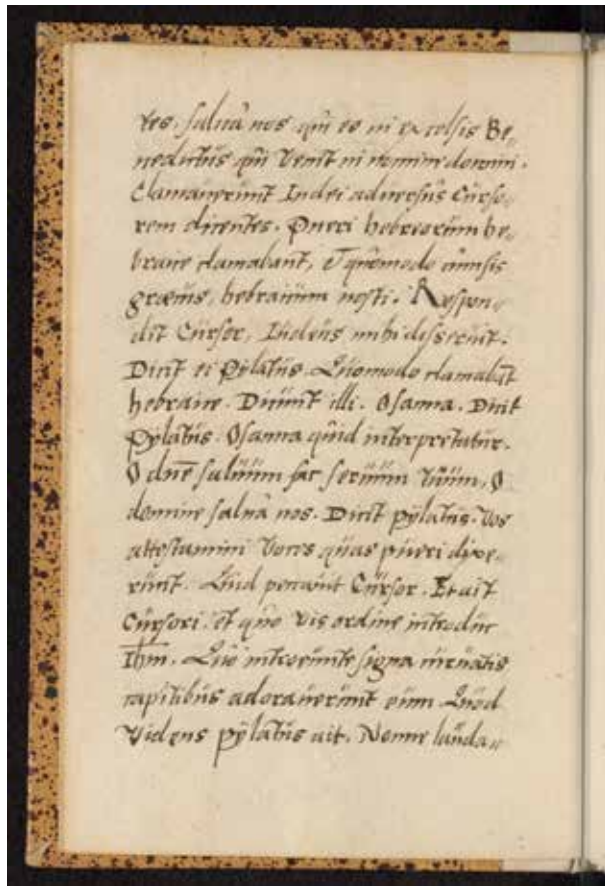 tes. salua nos qui es in excelsis Be„
nedictus qui Venit in nomine domini.
Clamauerunt Iudei aduersus Curso„
rem dicentes. Pueri hebreorum he„
braice clamabant, et quomodo cumsis
græcus, hebraicum nosti. Respon„
dit Cursor, Iudeus mihi disseruit.
Dicit ei Pylatus. Quomodo clamabāt
hebraice. Dicunt illi. Osanna. Dicit
Pylatus. Osanna quid interpretatur.
O dnē saluum fac seruum tuum, O
domine salua nos. Dicit pylatus. Vos
attestamini Voces quas pueri dixe„
runt. Quid peccauit Cursor. Et ait
Cursori. et quo vis ordine introduc
Ihm. Quo introeunte signa curuatis
capitibus adorauerunt eum Quod
Videns pylatus ait. Nonne lauda„